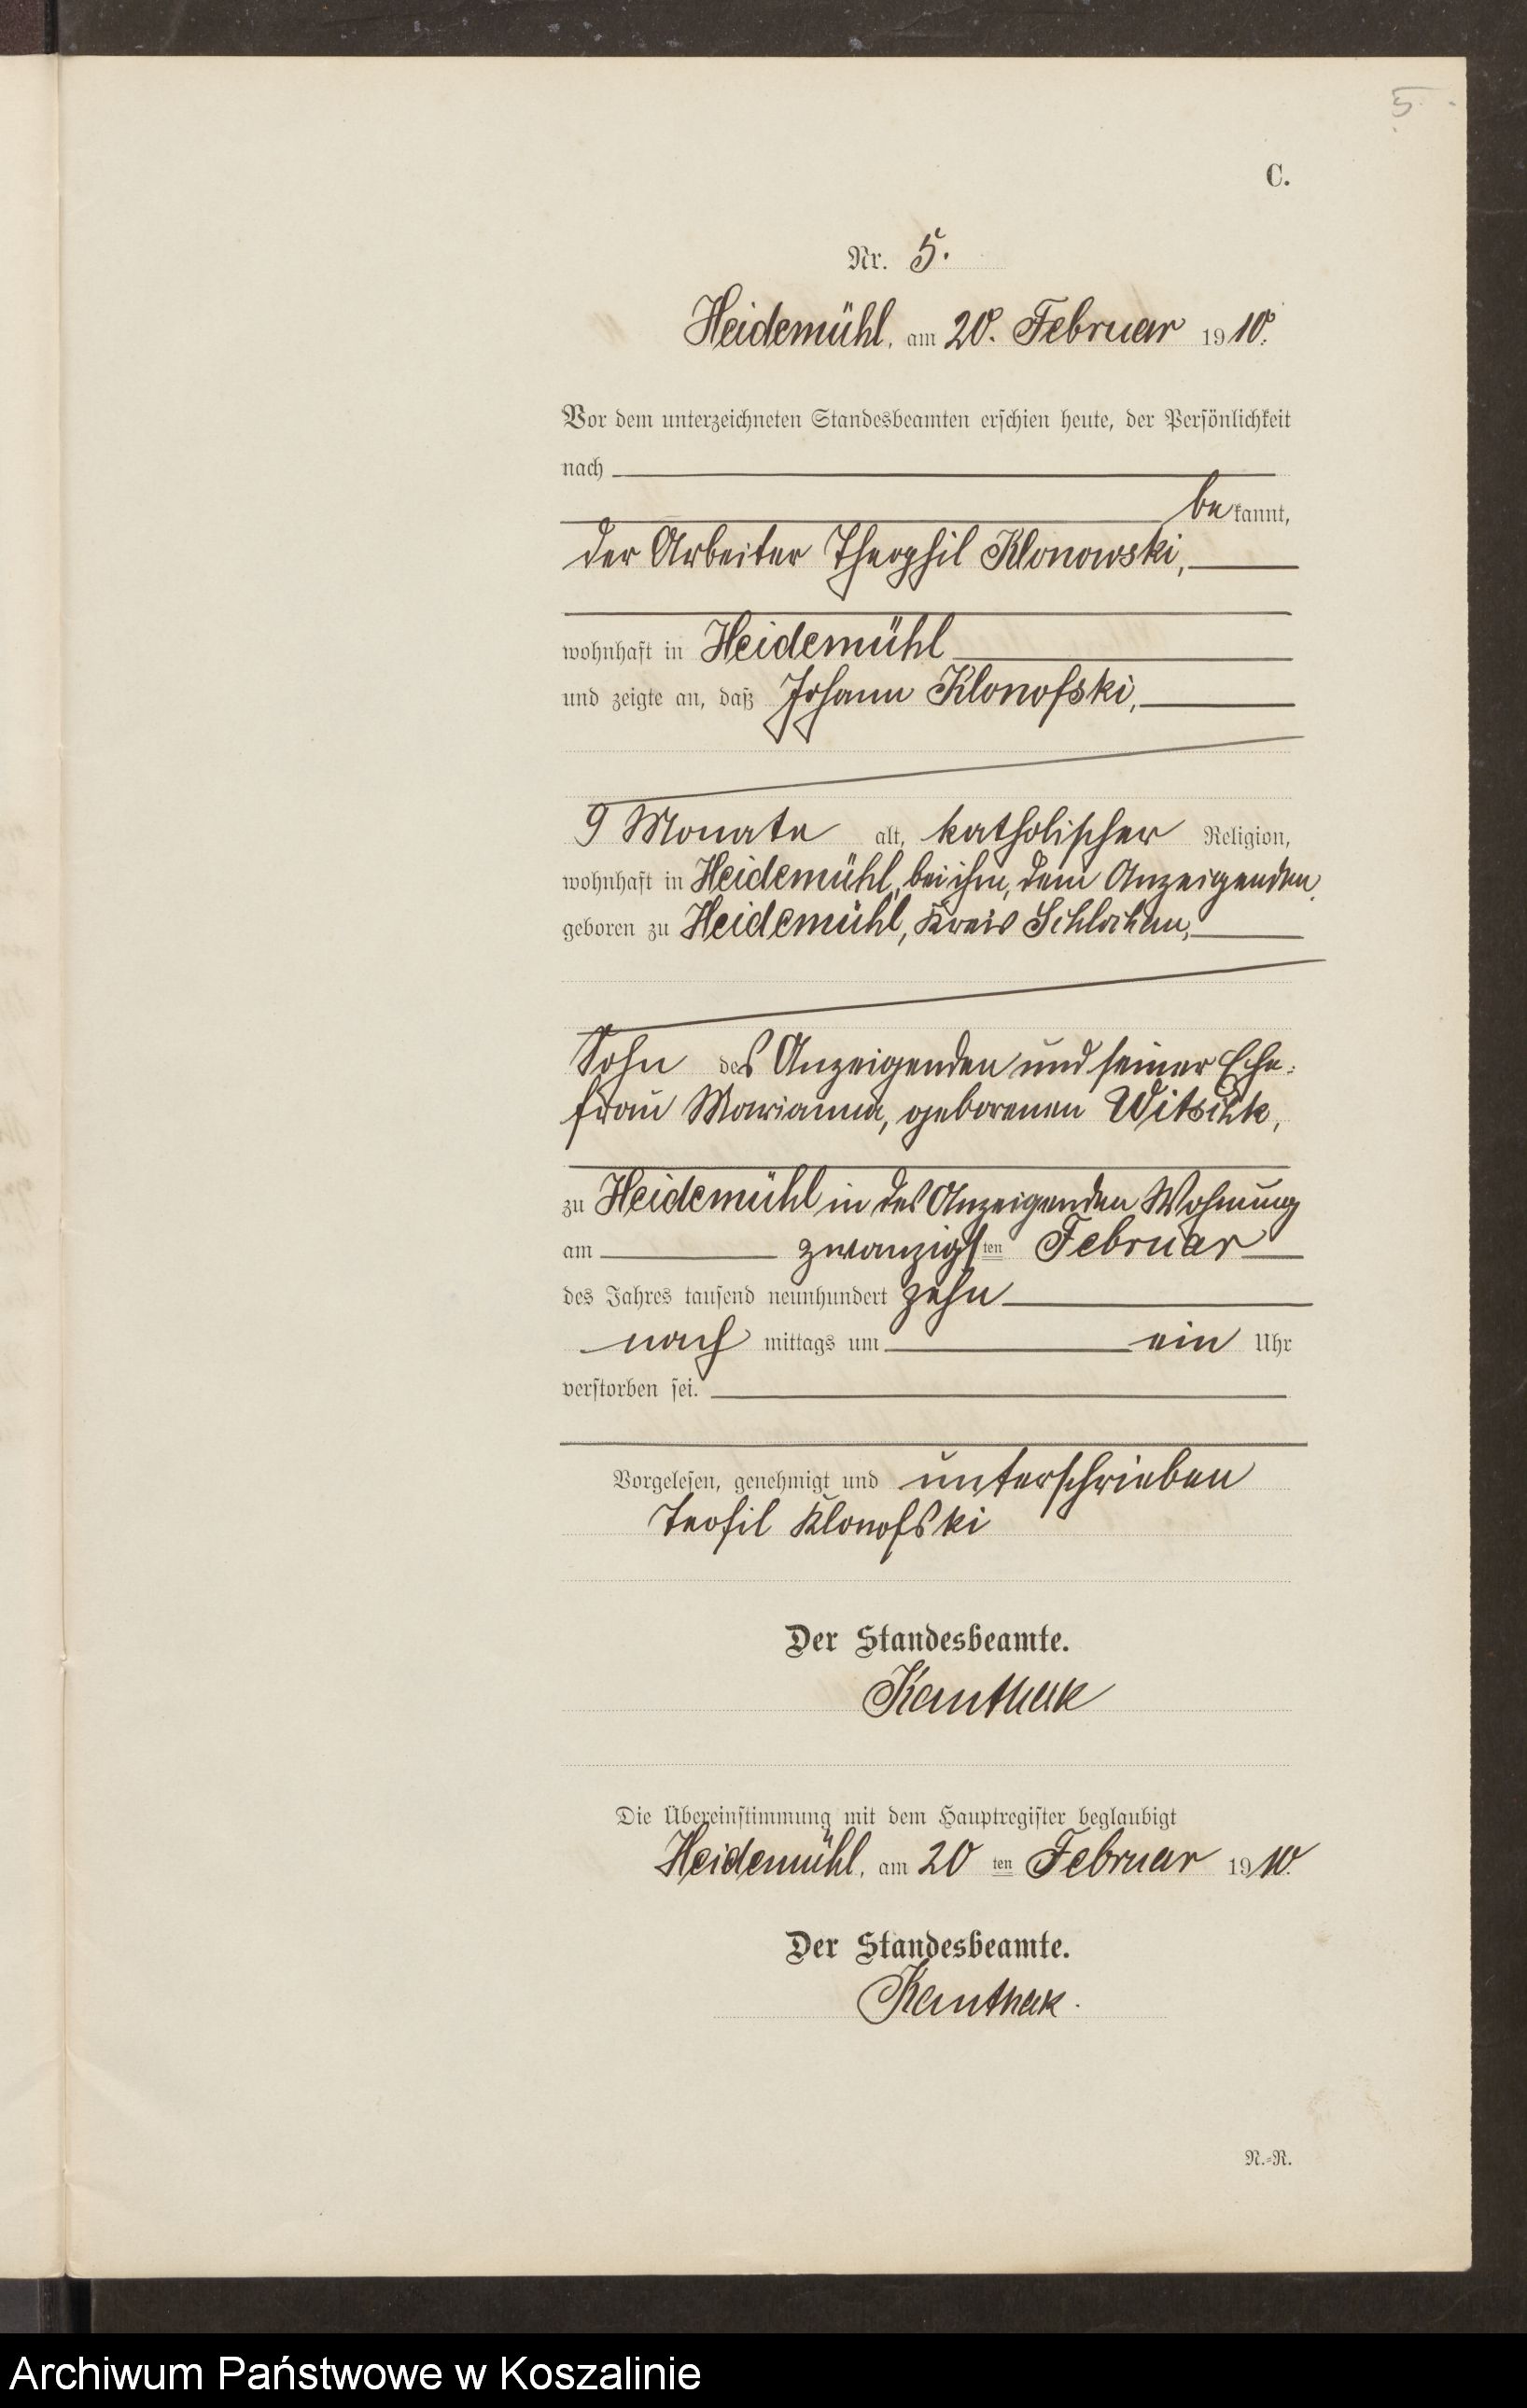 5
C.
Nr. 5.
Heidemühl, am 20. Februar 1910.
Vor dem unterzeichneten Standesbeamten erschien heute, der Persönlichkeit
nach
bekannt,
der Arbeiter Theophil Klonowski,
wohnhaft in Heidemühl
und zeigte an, daß Johann Klonofski,
9 Monate alt, katholischer Religion,
wohnhaft in Heidemühl, bei ihm, dem Anzeigenden,
geboren zu Heidemühl, Kreis Schlochau,
Sohn des Anzeigenden und seiner Ehe-
frau Marianna, geborenen
zu Heidemühl in des Anzeigenden Wohnung
am zwanzigsten Februar
des Jahres tausend neunhundert zehn
nachmittags um ein Uhr
verstorben sei.
Vorgelesen, genehmigt und unterschrieben
Teofil Klonofski
Der Standesbeamte.
Kanthak
Die Übereinstimmung mit dem Hauptregister beglaubigt
Heidemühl, am 20ten Februar 1910.
Der Standesbeamte.
Kanthak.
N.-R.
Archiwum Państwowe w Koszalinie